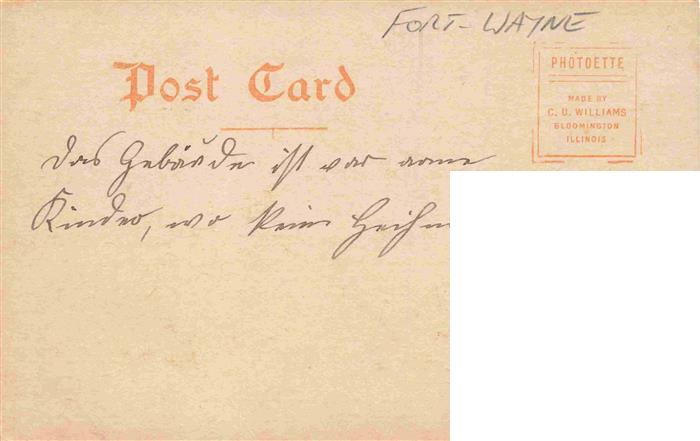 FORT-WAYNE
Post Card
PHOTOETTE
MADE BY
C. U. WILLIAMS
BLOOMINGTON
ILLINOIS
Das Gebäude ist vor arme
Kinder, wo kein